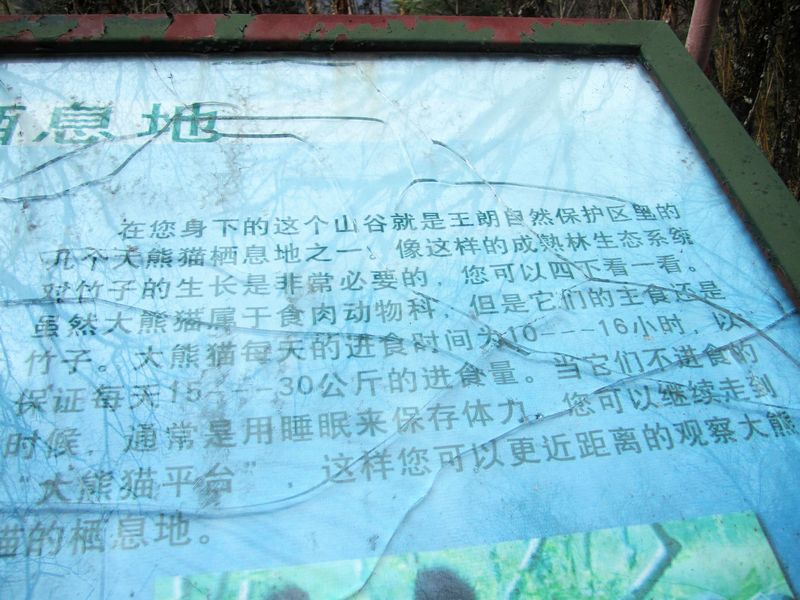 栖息地
在您身下的这个山谷就是王朗自然保护区里的
几个大熊猫栖息地之一。像这样的成熟林生态系统
对竹子的生长是非常必要的，您可以四下看一看。
虽然大熊猫属于食肉动物科，但是它们的主食还是
竹子。大熊猫每天的进食时间为10---16小时，以
保证每天15---30公斤的进食量。当它们不进食的
时候，通常是用睡眠来保存体力，您可以继续走到
“大熊猫平台”，这样您可以更近距离的观察大熊
猫的栖息地。